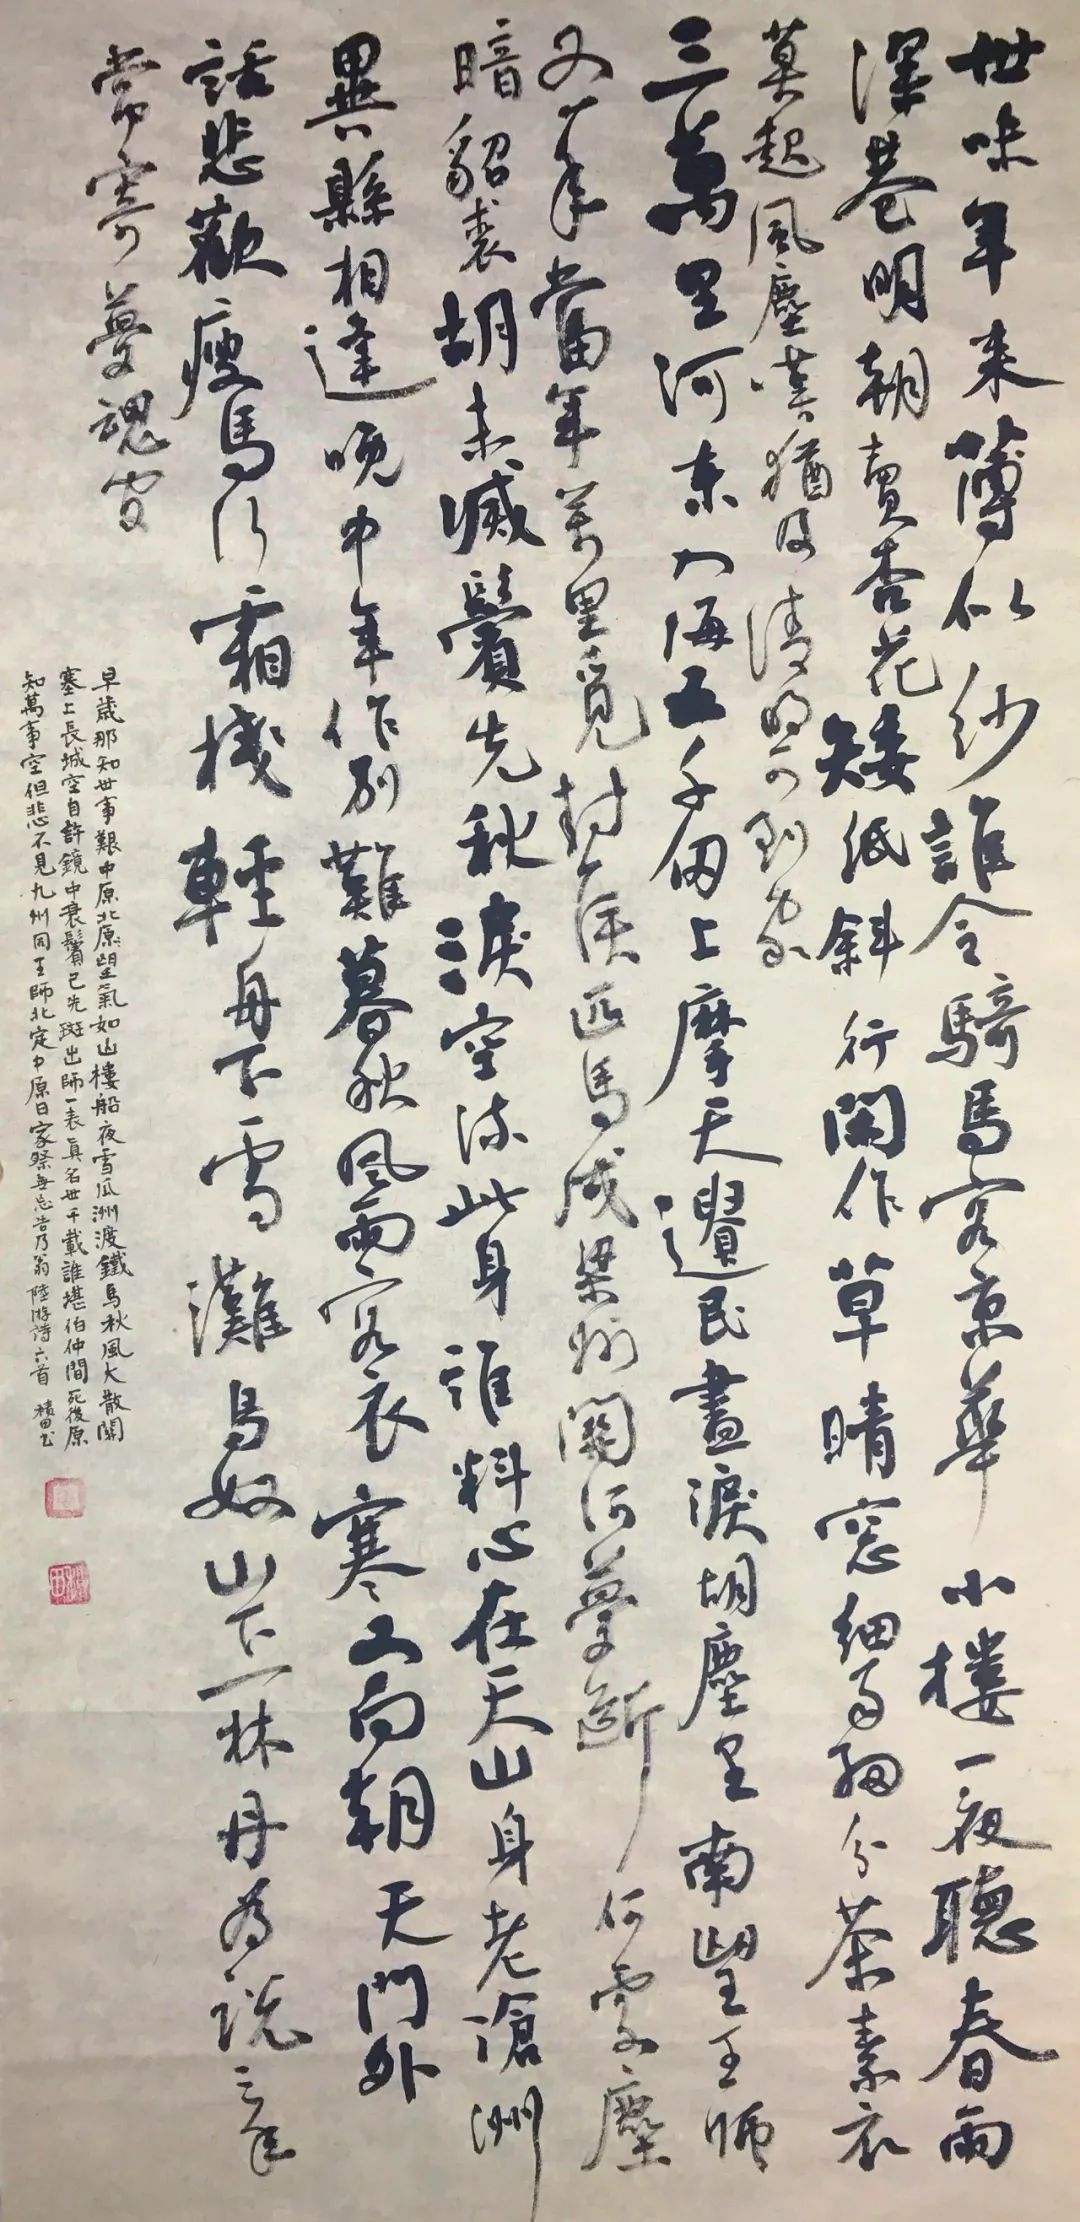 世味年来薄似纱誰令騎馬客京華小樓一夜聽春雨
深巷明朝賣杏花矮紙斜行閑作草晴窓細乳細分茶素衣
莫起風塵嘆猶及清明可到家
三萬里河東入海五千仞上摩天遺民盡淚胡塵里南望王師
又一年當年萬里覓封侯匹馬戍梁州關河夢斷何處塵
暗貂裘胡未滅鬢先秋淚空流此身誰料心在天山身老滄洲
異縣相逢晚中年作别難暮秋風雨客衣寒又向朝天門外
話悲歡瘦馬行霜棧輕舟下雪灘烏奴山下一林丹為說三年
常寄夢魂間
早歲那知世事艱中原北原望氣如山樓船夜雪瓜洲渡鐵馬秋風大散關
塞上長城空自許鏡中衰鬢已先斑出師一表真名世千載誰堪伯仲間死後原
知萬事空但悲不見九州同王師北定中原日家祭毋忘告乃翁陸游詩六首積田書